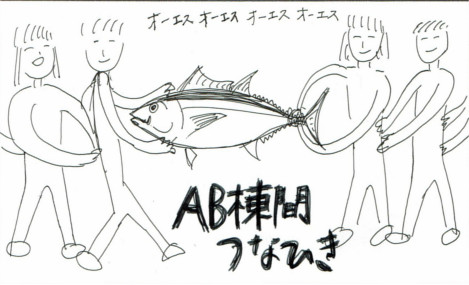 オーエス オーエス オーエス オーエス
AB棟間
つなひき